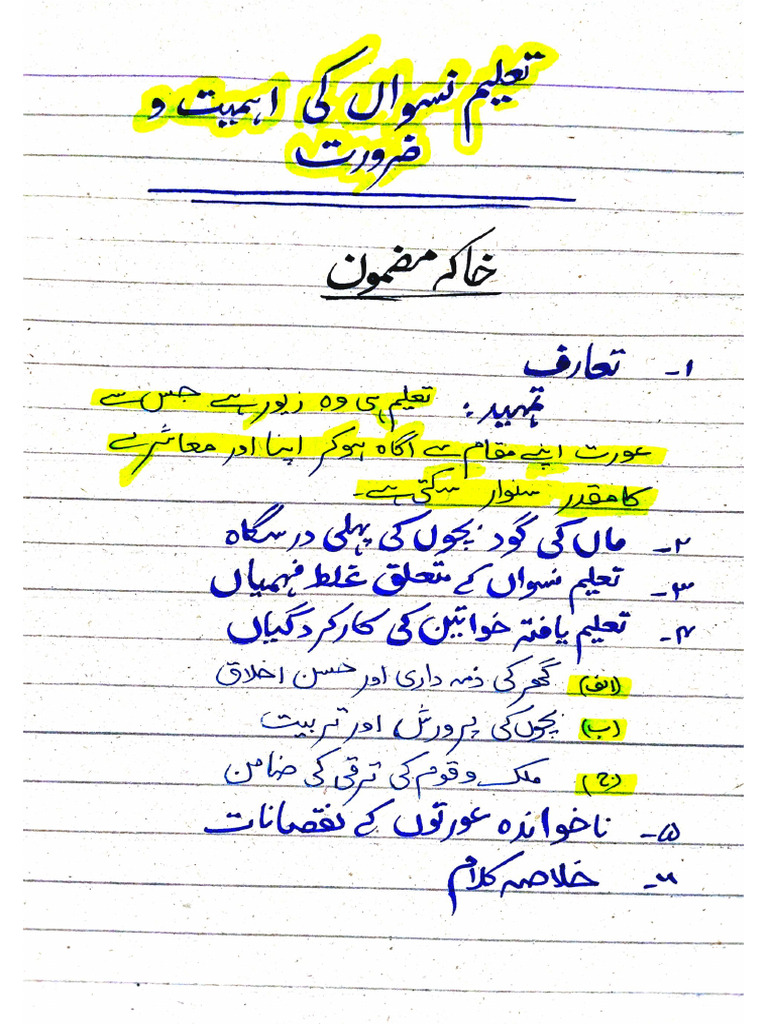 تعلیم نسواں کی اہمیت و
ضرورت
خاکہ مضمون
۱۔ تعارف
تمہید: تعلیم ہی وہ زیور ہے جس سے
عورت اپنے مقام سے آگاہ ہوکر اپنا اور معاشرے
کا مقدر سنوار سکتی ہے۔
۲۔ ماں کی گود بچوں کی پہلی درسگاہ
۳۔ تعلیم نسواں کے متعلق غلط فہمیاں
۴۔ تعلیم یافتہ خواتین کی کارکردگیاں
(الف) گھر کی ذمہ داری اور حسن اخلاق
(ب) بچوں کی پرورش اور تربیت
(ج) ملک و قوم کی ترقی کی ضامن
۵۔ ناخواندہ عورتوں کے نقصانات
۶۔ خلاصہ کلام